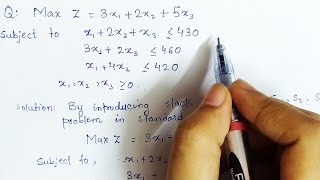 Q: Max Z = 3x₁ + 2x₂ + 5x₃
Subject to x₁ + 2x₂ + x₃ ≤ 430
3x₂ + 2x₃ ≤ 460
x₁ + 4x₂ ≤ 420
x₁, x₂, x₃ ≥ 0
Solution: By introducing slack
problem in standard
Max Z = 3x₁ +
Subject to, x₁ + 2x₂
3x₁ +